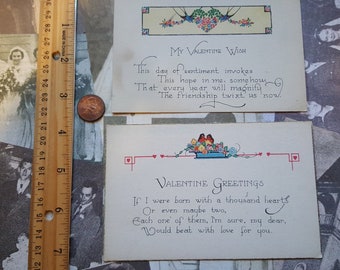 My Valentine Wish
This day of sentiment invokes
This hope in me, somehow,
That every year will magnify
The friendship twixt us now.
Valentine Greetings
If I were born with a thousand hearts
Or even maybe two,
Each one of them, I'm sure, my dear,
Would beat with love for you.